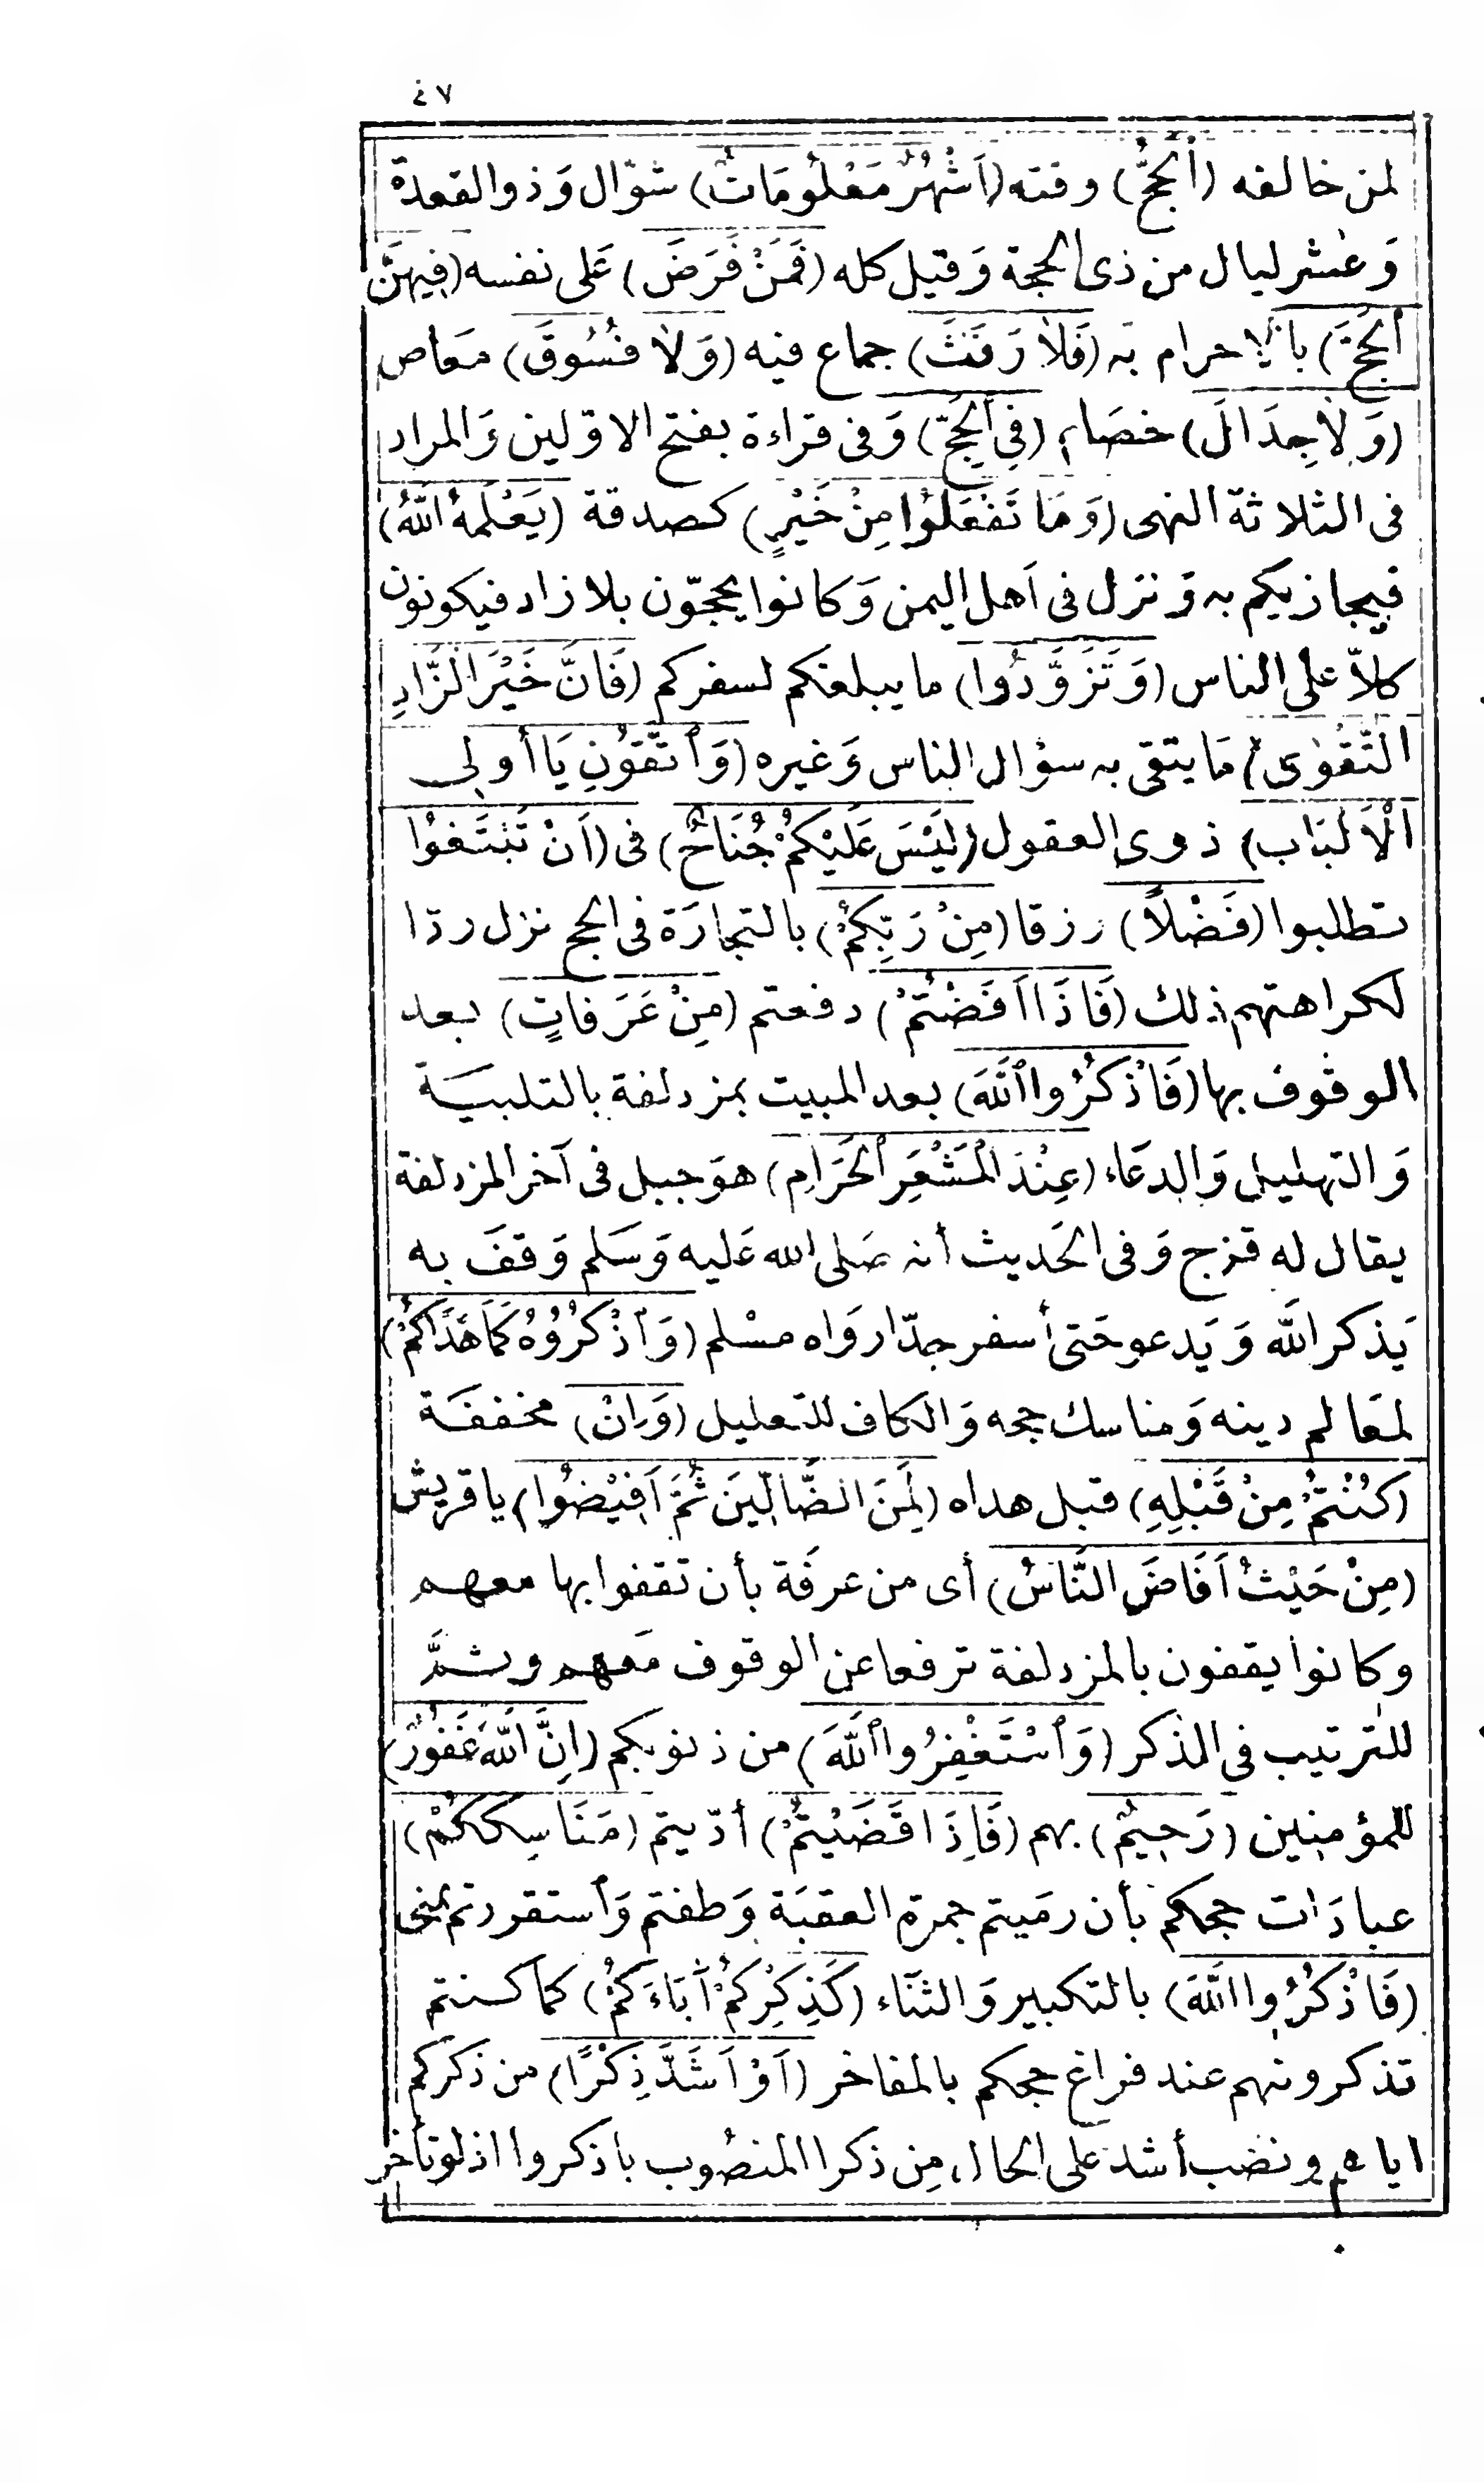 ٤٧
لمن خالفه (اَلْحَجُّ) وقته (اَشْهُرٌ مَعْلُومَاتٌ) شوّال وَذوالقعدة
وَعشر ليال من ذى الحجة وَقيل كله (فَمَنْ فَرَضَ) عَلى نفسه (فِيهِنَّ
اَلْحَجَّ) بالاحرام به (فَلَا رَفَثَ) جماع فيه (وَلَا فُسُوقَ) مَعاص
(وَلَا جِدَالَ) خصَام (فِى اَلْحَجِّ) وَفى قراءة بفتح الاوّلين وَالمراد
فى الثلاثة النهى (وَمَا تَفْعَلُوا مِنْ خَيْرٍ) كصدقة (يَعْلَمْهُ اللّٰهُ)
فيجازيكم به وَنزل فى اَهل اليمن وَكانوا يحجّون بلا زاد فيكونون
كلاّ على الناس (وَتَزَوَّدُوا) ما يبلغكم لسفركم (فَاِنَّ خَيْرَ الزَّادِ
التَّقْوٰى) مَا يتقى به سؤال الناس وَغيره (وَاتَّقُونِ يَا أُولِى
اْلاَلْبَابِ) ذوى العقول (لَيْسَ عَلَيْكُمْ جُنَاحٌ) فى (اَنْ تَبْتَغُوْا
تطلبوا (فَضْلاً) رزقا (مِنْ رَبِّكُمْ) بالتجارَة فى الحج نزل ردّا
لكراهتهم ذلك (فَاِذَا اَفَضْتُمْ) دفعتم (مِنْ عَرَفاتٍ) بعد
الوقوف بها (فَاذْكُرُوا اللّٰهَ) بعد المبيت بمزدلفة بالتلبيَة
وَالتهليل وَالدعَاء (عِنْدَ الْمَشْعَرِ الْحَرَامِ) هوَ جبل فى آخر المزدلفة
يقال له قزح وَفى الحَديث أنه صَلى الله عَليه وَسَلم وَقفَ به
يَذكر اللّٰه وَيَدعو حَتى أسفر جدّا روَاه مسْلم (وَاذْكُرُوْهُ كَمَا هَدَاكُمْ)
لمعَالم دينه وَمناسك حجه وَالكاف للتعليل (وَاِنْ) مخففَة
(كُنْتُمْ مِنْ قَبْلِهِ) قبل هداه (لَمِنَ الضَّالِّينَ ثُمَّ اَفِيْضُوا) يا قريش
(مِنْ حَيْثُ اَفَاضَ النَّاسُ) أى من عرفَة بأن تقفوا بها معهم
وكانوا يقفون بالمزدلفة ترفعا عن الوقوف مَعهم وثمَّ
للترتيب فى الذكر (وَاسْتَغْفِرُوا اللّٰهَ) من ذنوبكم (اِنَّ اللّٰهَ غَفُوْرٌ)
للمؤمنين (رَحِيمٌ) بهم (فَاِذَا قَضَيْتُمْ) أدّيتم (مَنَاسِكَكُمْ)
عبادَات حجكم بأن رمَيتم جمرة العقبَة وَطفتم وَاستقررتم بمنى
(فَاذْكُرُوا اللّٰهَ) بالتكبير وَالثنَاء (كَذِكْرِكُمْ اٰبَاءَكُمْ) كما كنتم
تذكرونهم عند فراغ حجكم بالمفاخر (اَوْ اَشَدَّ ذِكْرًا) من ذكركم
اياهم ونصب أشد على الحال من ذكرا المنصُوب باذكروا اذ لو تأخر